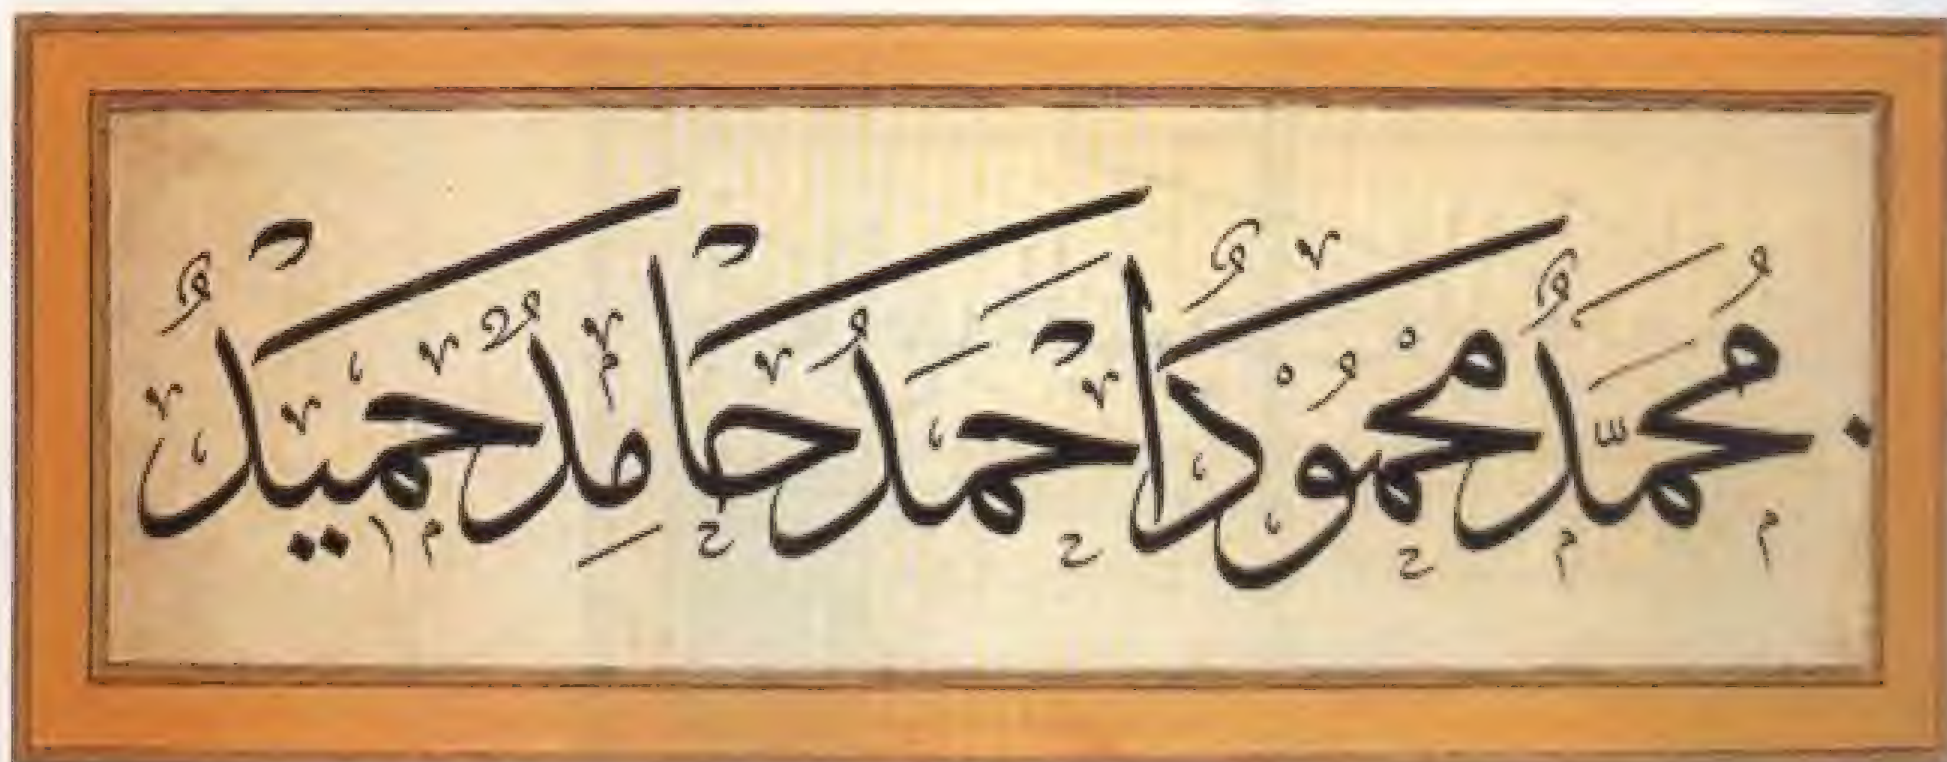 مُحَمَّدٌ مَحْمُوْدٌ اَحْمَدُ حَامِدٌ حَمِيدٌ